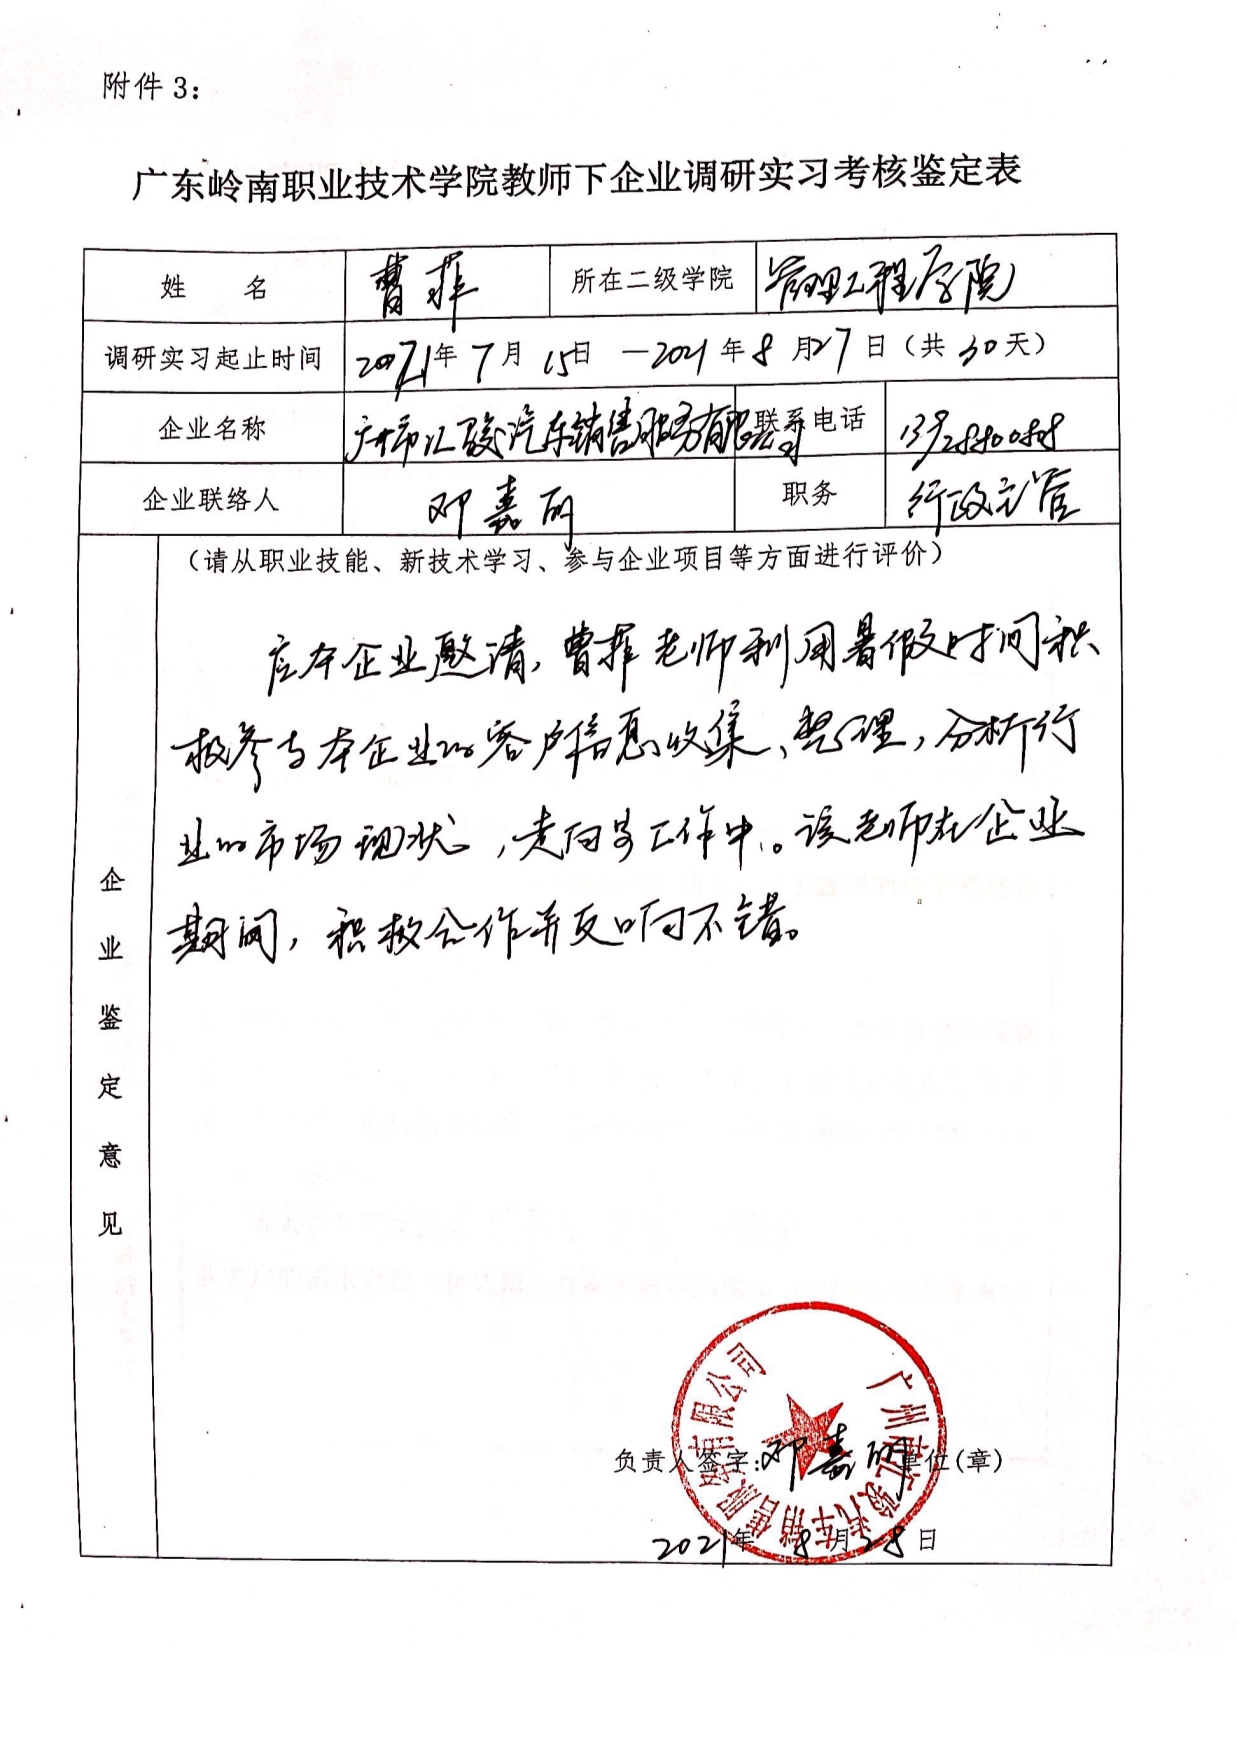 附件 3：
广东岭南职业技术学院教师下企业调研实习考核鉴定表
姓 名 曹菲 所在二级学院 管理工程学院
调研实习起止时间 2021年 7 月 15日 —2021 年 8 月27 日（共 30 天）
企业名称 广州市汇骏汽车销售服务有限公司 联系电话
企业联络人 邓嘉丽 职务 行政主管
（请从职业技能、新技术学习、参与企业项目等方面进行评价）
应本企业邀请，曹菲老师利用暑假时间积
极参与本企业的客户信息收集、整理，分析行
业的市场现状，走向等工作中。该老师在企业
期间，积极合作并反响不错。
企业鉴定意见
广州市汇骏汽车销售服务有限公司
负责人签字：邓嘉丽 单位(章)
2021年 8月28日